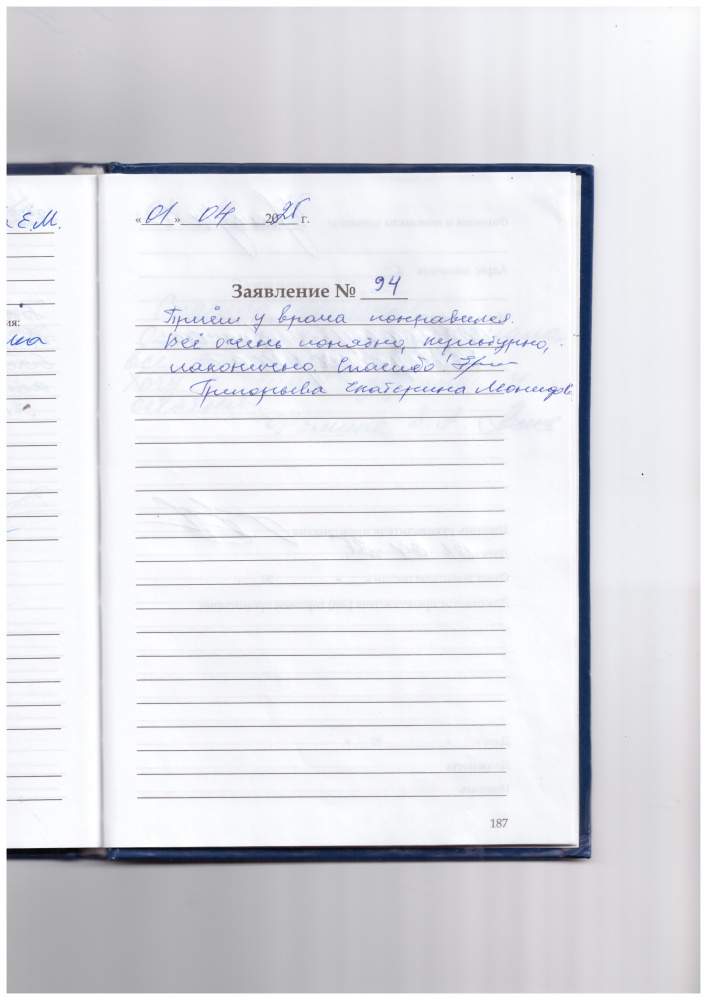 Е.М.
«01» 04 2025 г.
ия:
Заявление № 94
Приём у врача понравился.
Всё очень понятно,
лаконично. Спасибо!
Григорьева Екатерина Леонидов
187